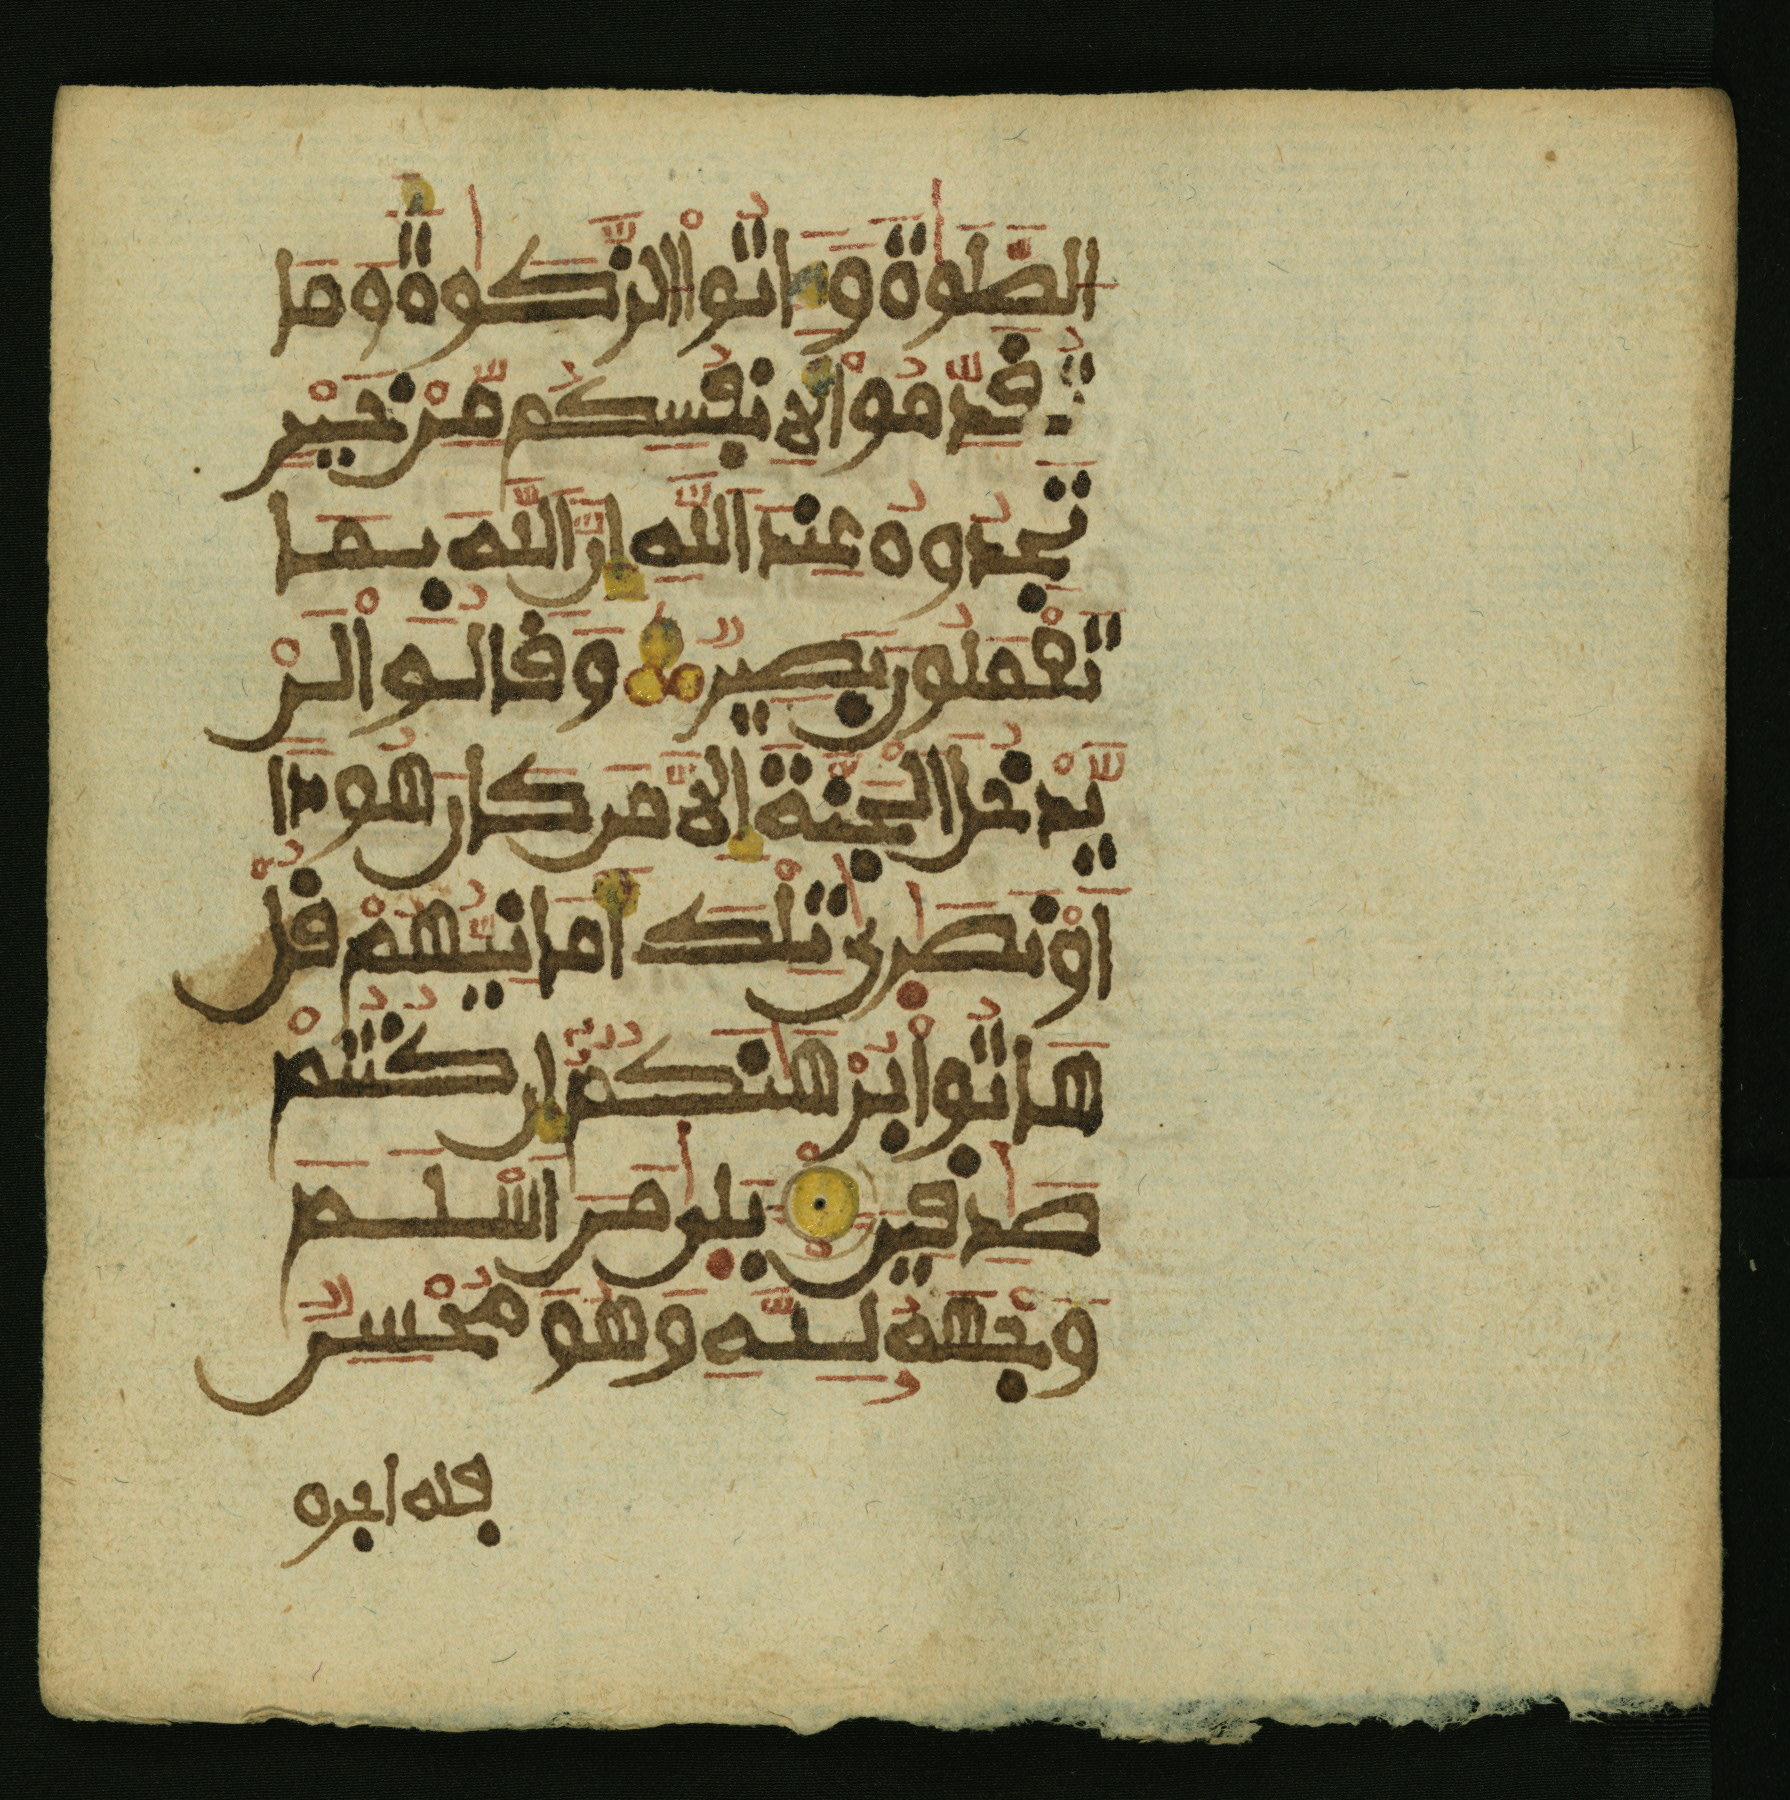 الصَّلَوٰةَ وَءَاتُواْ الزَّكَوٰةَ وَمَا
تُقَدِّمُواْ لِأَنفُسِكُم مِّنْ خَيْرٍ
تَجِدُوهُ عِندَ اللَّهِ إِنَّ اللَّهَ بِمَا
تَعْمَلُونَ بَصِيرٌ وَقَالُواْ لَنْ
يَّدْخُلَ الْجَنَّةَ إِلَّا مَن كَانَ هُودًا
أَوْ نَصَٰرَىٰ تِلْكَ أَمَانِيُّهُمْ قُلْ
هَاتُواْ بُرْهَٰنَكُمُۥ إِن كُنتُمْ
صَٰدِقِينَ بَلَىٰ مَنَ أَسْلَمَ
وَجْهَهُۥ لِلَّهِ وَهُوَ مُحْسِنٌ
فله اجره